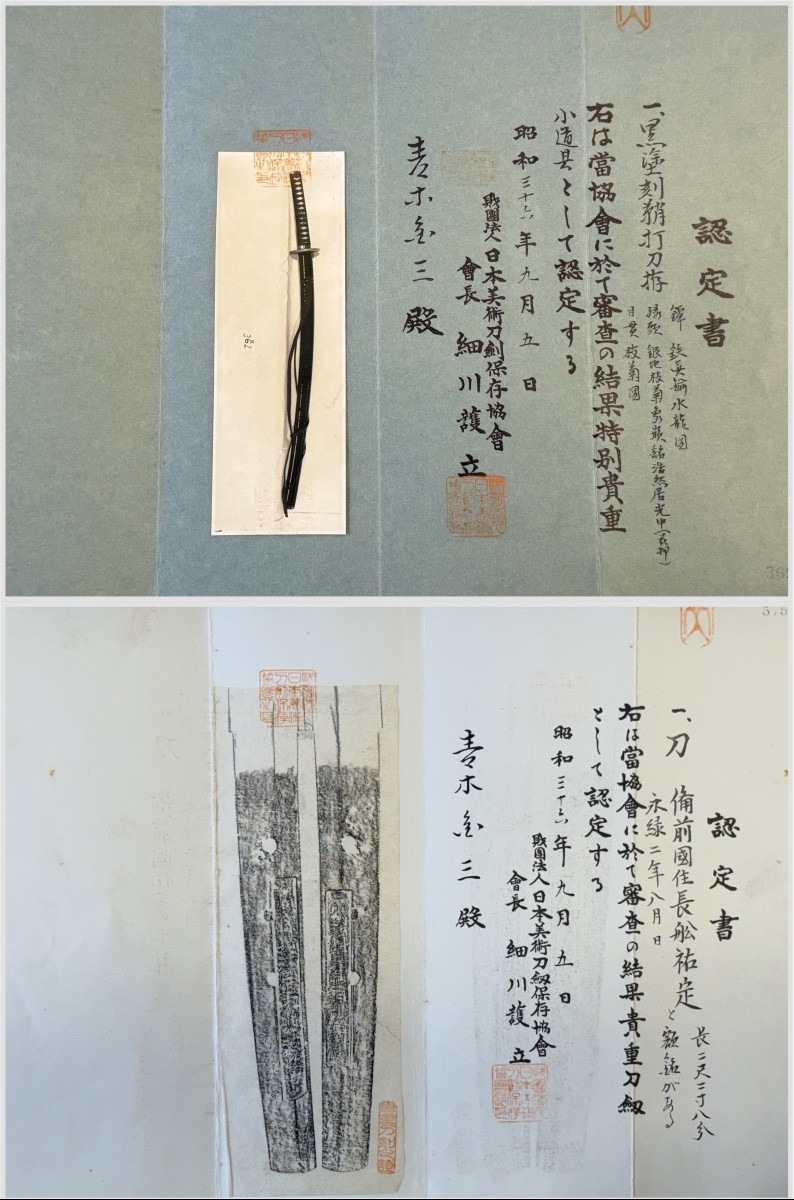 認定書
一、黒塗刻鞘打刀拵
鐔 鉄長 水龍図
縁頭 銀地枝菊象嵌銘浩然居光中(花押)
目貫 枝菊図
右は當協會に於て審査の結果特別貴重
小道具として認定する
昭和三十六年九月五日
財團法人日本美術刀劍保存協會
會長 細川護立
青木金三殿
362
認定書
一、刀 備前國住長舩祐定 と額銘がある
永禄二年八月日
長二尺二寸八分
右は當協會に於て審査の結果貴重刀劔
として認定する
昭和三十六年九月五日
財團法人日本美術刀劔保存協會
會長 細川護立
青木金三殿